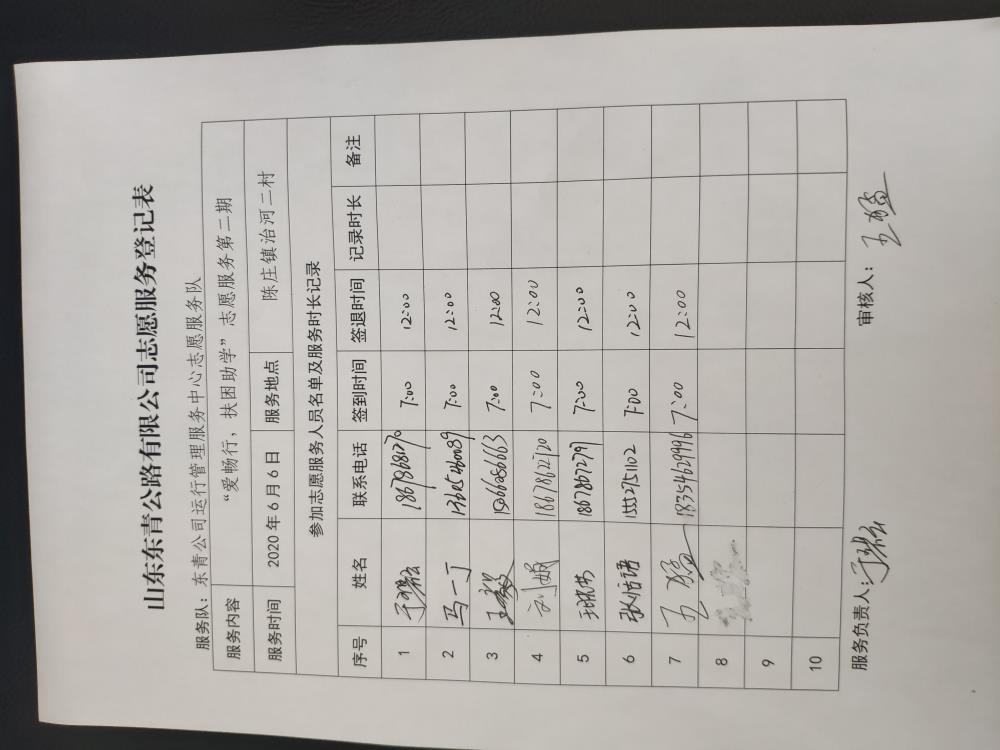 山东东青公路有限公司志愿服务登记表
服务队：东青公司运行管理服务中心志愿服务队
服务内容 “爱畅行，扶困助学”志愿服务第二期
服务时间 2020年6月6日 服务地点 陈庄镇治河二村
参加志愿服务人员名单及服务时长记录
序号 姓名 联系电话 签到时间 签退时间 记录时长 备注
1 18678681270 7:00 12:00
2 马一丁 7:00 12:00
3 15066256663 7:00 12:00
4 刘娟 18678622120 7:00 12:00
5 18678672791 7:00 12:00
6 15552751102 7:00 12:00
7 王猛 18354629996 7:00 12:00
8
9
10
服务负责人： 审核人：王猛